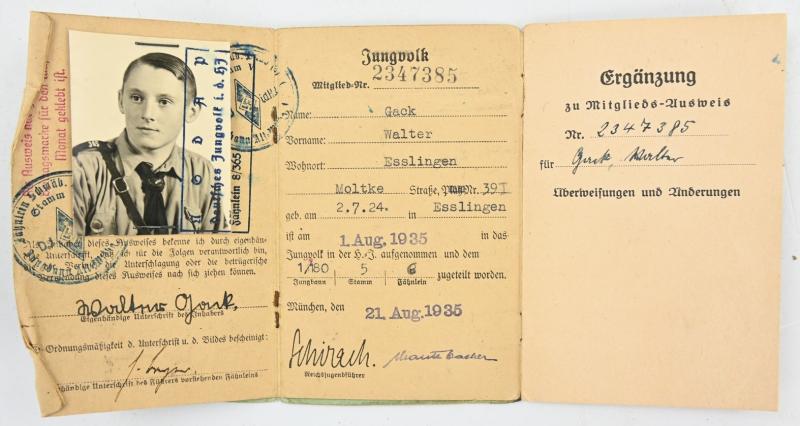 Ausweis nur
tragsmarke für den
Monat geklebt ist.
N S D A P
Deutsches Jungvolk i. d. HJ
Fähnlein 8/365
Fähnlein Schwäb.
Stamm
dieses Ausweises bekenne ich durch eigenhän-
Unterschrift, ich für die Folgen verantwortlich bin,
Unterschlagung oder die betrügerische
Verwendung dieses Ausweises nach sich ziehen können.
Walter Gack.
Eigenhändige Unterschrift des Inhabers
Ordnungsmäßigkeit d. Unterschrift u. d. Bildes bescheinigt:
händige Unterschrift des Führers vorstehenden Fähnleins
Jungvolk
Mitglied-Nr. 2347385
Name: Gack
Vorname: Walter
Wohnort: Esslingen
Moltke Straße, Nr. 39I
geb. am 2.7.24. in Esslingen
ist am 1. Aug. 1935 in das
Jungvolk in der H.-J. aufgenommen und dem
1/180 5 6 zugeteilt worden.
Jungbann Stamm Fähnlein
München, den 21. Aug. 1935
Schirach.
Reichsjugendführer
Ergänzung
zu Mitglieds-Ausweis
Nr. 2347385
für Gack, Walter
Überweisungen und Änderungen